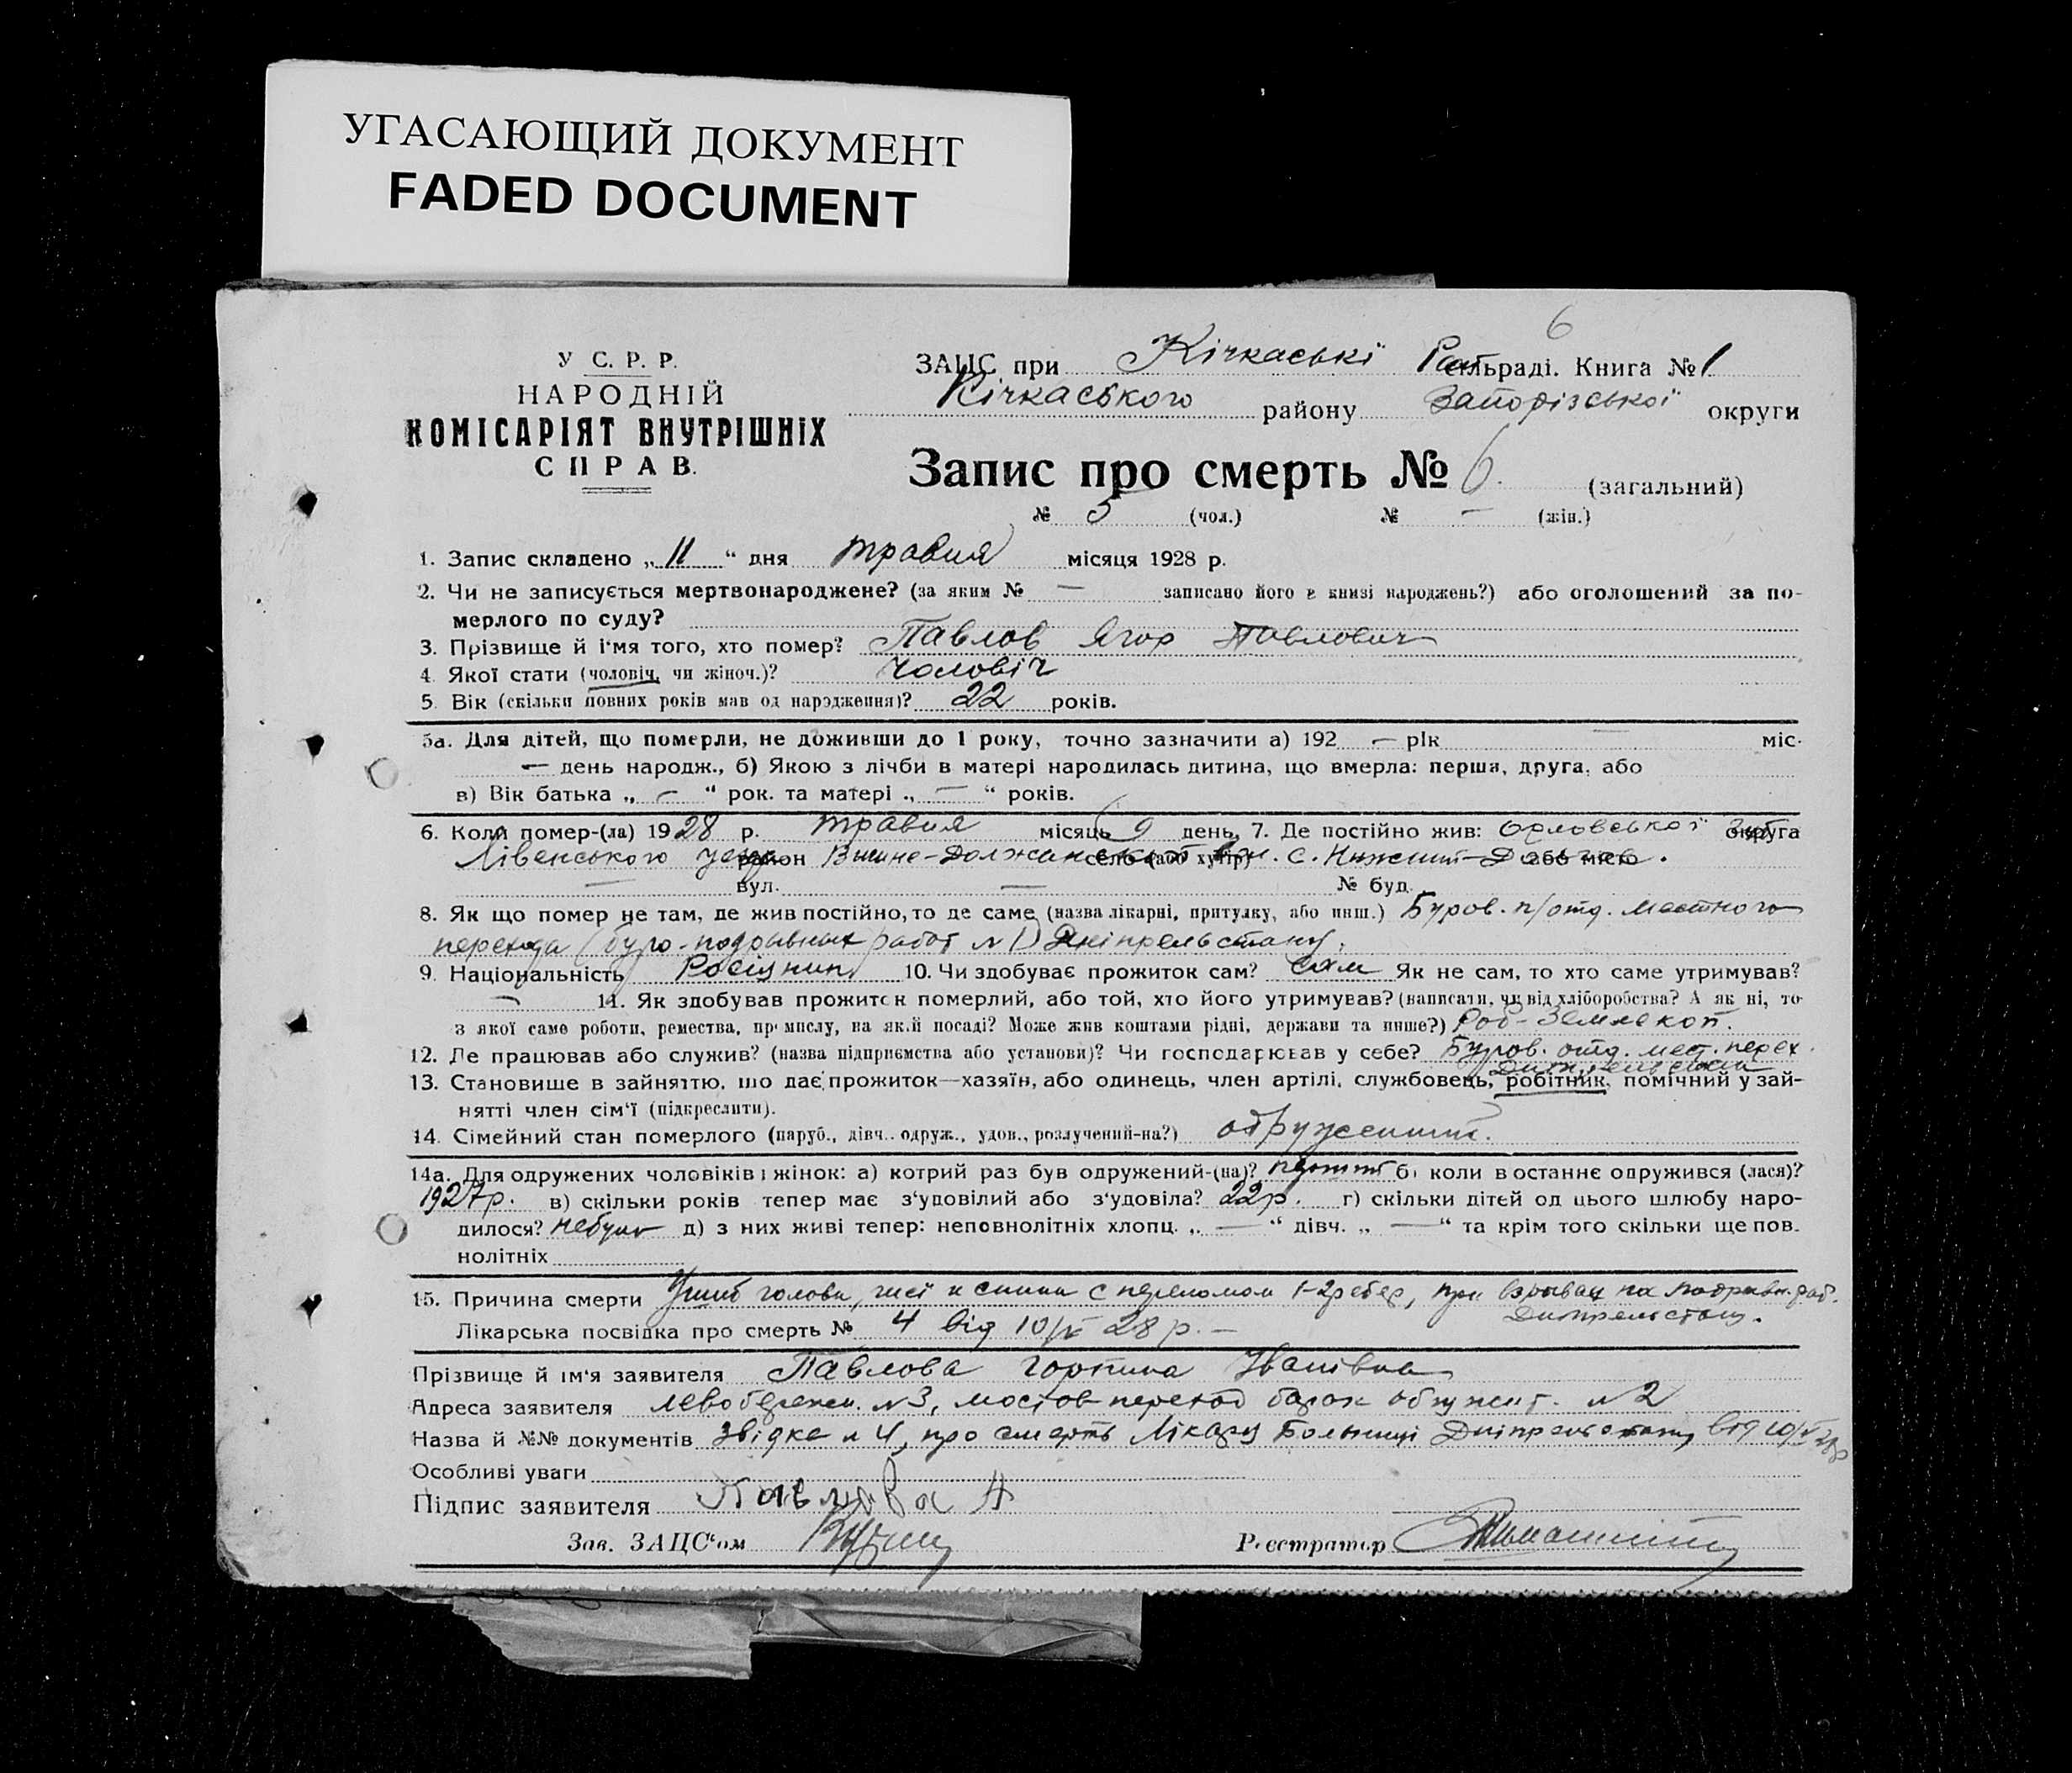 УГАСАЮЩИЙ ДОКУМЕНТ
FADED DOCUMENT
6
У С. Р. Р.
НАРОДНІЙ
КОМІСАРІЯТ ВНУТРІШНІХ
СПРАВ.
ЗАЦС при Кічкаські Рай сільраді. Книга № 1
Кічкаського району Запорізської округи
Запис про смерть № 6. (загальний)
№ 5 (чол.) № — (жін.)
1. Запис складено „ 11 “ дня травня місяця 1928 р.
2. Чи не записується мертвонароджене? (за яким № — записано його в книзі народжень?) або оголошений за по-
мерлого по суду?
3. Прізвище й і'мя того, хто помер? Павлов Ягор Павлович
4. Якої стати (чоловіч, чи жіноч.)? Чоловіч
5. Вік (скільки повних років мав од народження)? 22 років.
5а. Для дітей, що померли, не доживши до 1 року, точно зазначити а) 192 — рік — міс.
— день народж., б) Якою з лічби в матері народилась дитина, що вмерла: перша, друга, або
в) Вік батька „ — “ рок. та матері „ — “ років.
6. Коли помер-(ла) 1928 р. травня місяць 9 день, 7. Де постійно жив: Орловської округа
Лівенського район село (або хутір) с. або місто .
— вул. — № буд.
8. Як що помер не там, де жив постійно, то де саме (назва лікарні, притулку, або инш.) Буров. п/отд. местного
перехода (буро-подрывных работ № 1) Дніпрельстану.
9. Національність Росіянин 10. Чи здобуває прожиток сам? сам Як не сам, то хто саме утримував?
— 11. Як здобував прожиток померлий, або той, хто його утримував? (написати, чи від хліборобства? А як ні, то
з якої саме роботи, ремества, промислу, на якій посаді? Може жив коштами рідні, держави та инше?) Роб-Землекоп.
12. Де працював або служив? (назва підприємства або установи)? Чи господарював у себе? Буров. отд. мест. перех.
13. Становище в зайняттю, що дає прожиток—хазяїн, або одинець, член артілі, службовець, робітник, помічний у зай-
нятті член сім'ї (підкреслити).
14. Сімейний стан померлого (паруб., дівч.. одруж., удов., розлучений-на?) одружений.
14а. Для одружених чоловіків і жінок: а) котрий раз був одружений-(на)? б) коли в останнє одружився (лася)?
1927р. в) скільки років тепер має з'удовілий або з'удовіла? 22р. г) скільки дітей од цього шлюбу наро-
дилося? небуло д) з них живі тепер: неповнолітніх хлопц. „ — “ дівч. „ — “ та крім того скільки ще пов-
нолітніх
15. Причина смерти Ушиб голови, шеї и спини с переломом 1-2 ребер, при взрывах на подривн. раб.
Дніпрельстану.
Лікарська посвідка про смерть № 4 від 10/V 28 р. —
Прізвище й ім'я заявителя Павлова Горпина Іванівна
Адреса заявителя Левобережн. №3, мостов переход барак № 2
Назва й №№ документів Звідка № 4, про смерть Лікаря Больниці Дніпрельстану від 10/V 28р
Особливі уваги
Підпис заявителя Павлова А
Зав. ЗАЦС'ом
Реєстратор